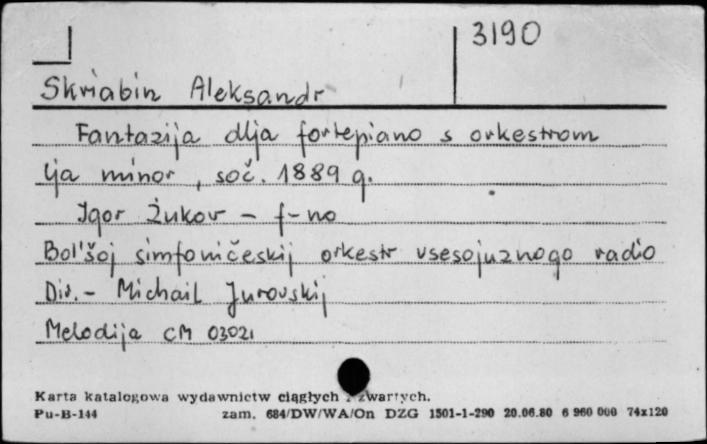 3190
Skriabin Aleksandr
Fantazija dlja fortepiano s orkestrom
lja minor, soč. 1889 g.
Igor Žukov - f-no
Bol'šoj simfoničeskij orkestr vsesojuznogo radio
Dir. - Michail Jurovskij
Melodija CM 03021
Karta katalogowa wydawnictw ciągłych i zwartych.
Pu-B-144 zam. 684/DW/WA/On DZG 1501-1-290 20.06.80 6 960 000 74x120